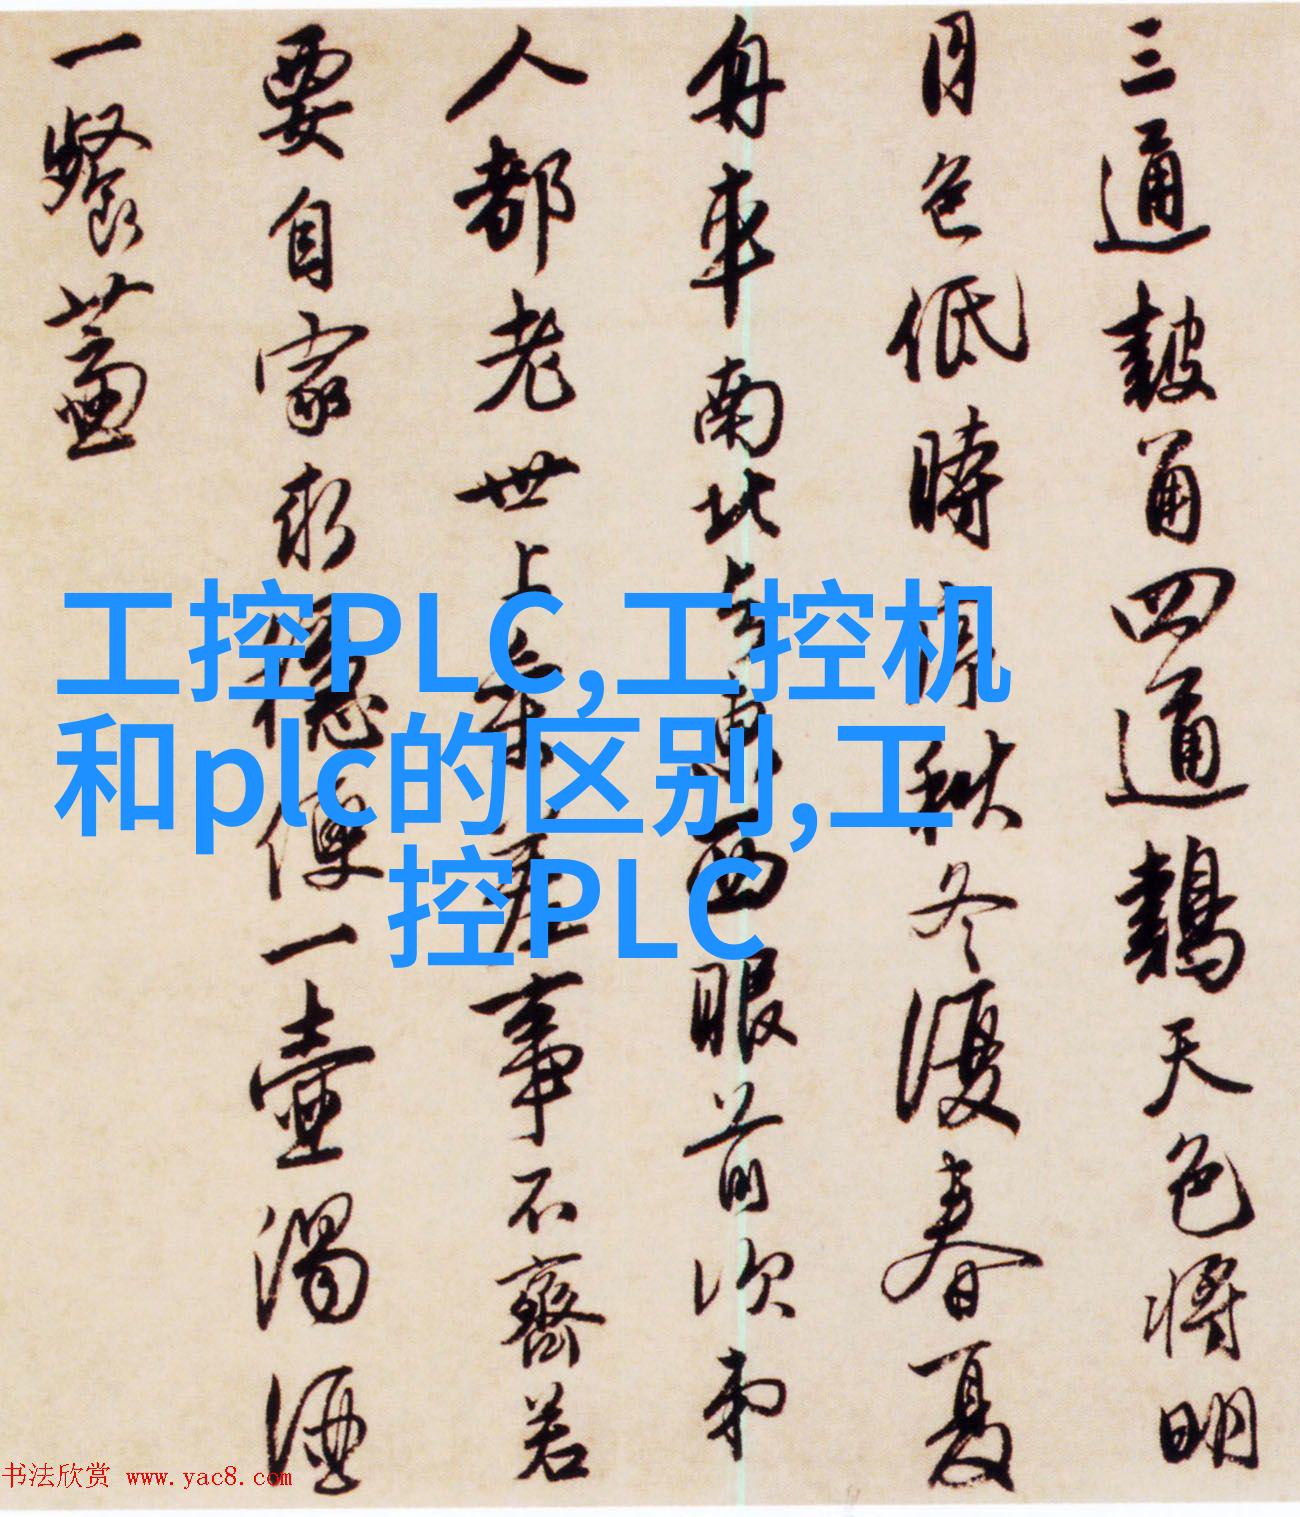 三通皷角四通鷄天色將明
月色低時序秋冬復春夏
舟車南北與東西眼前次第
人都老世上參差事不齊若
要自家求穩便一壺濁酒
一餐虀
工控PLC,工控机
和plc的区别,工
控PLC
书法欣赏 www.yac8.com